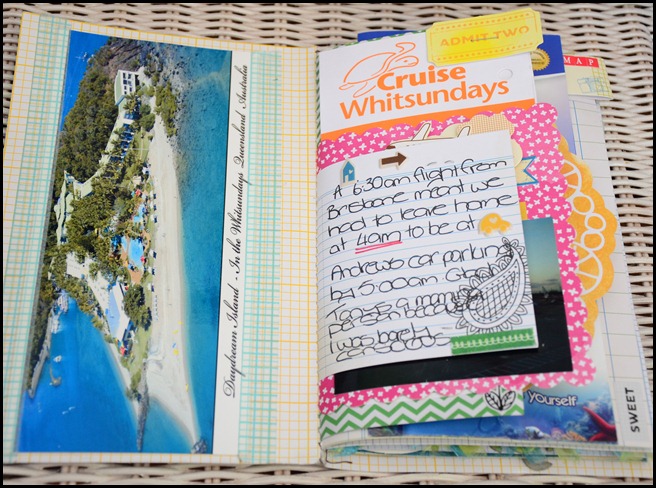 Daydream Island - In the Whitsundays Queensland Australia
ADMIT TWO
MAP
Cruise
Whitsundays
A 6:30am flight from
Brisbane meant we
had to leave home
at 4am to be at
Andrews car parking
by 5:00am
is a
person because
I was barely
yourself
SWEET